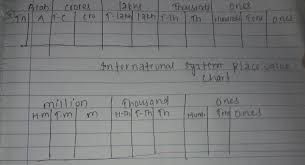 Arab crores lakhs Thousand Ones
T-A A T-C Cro T-lakh lakh T-Th Th Hundreds Tens ones
International System Place value chart
million Thousand Ones
H-m T-m m H-Th T-Th Th Hund Tens Ones